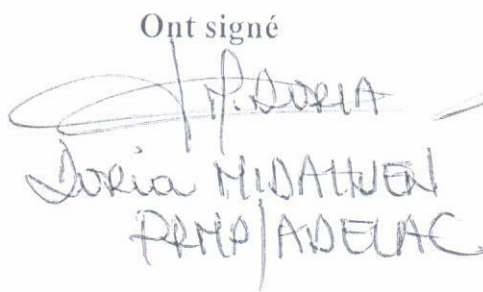 Ont signé
M. DORIA
Doria MIDAHUEN
PRMP/ADELAC